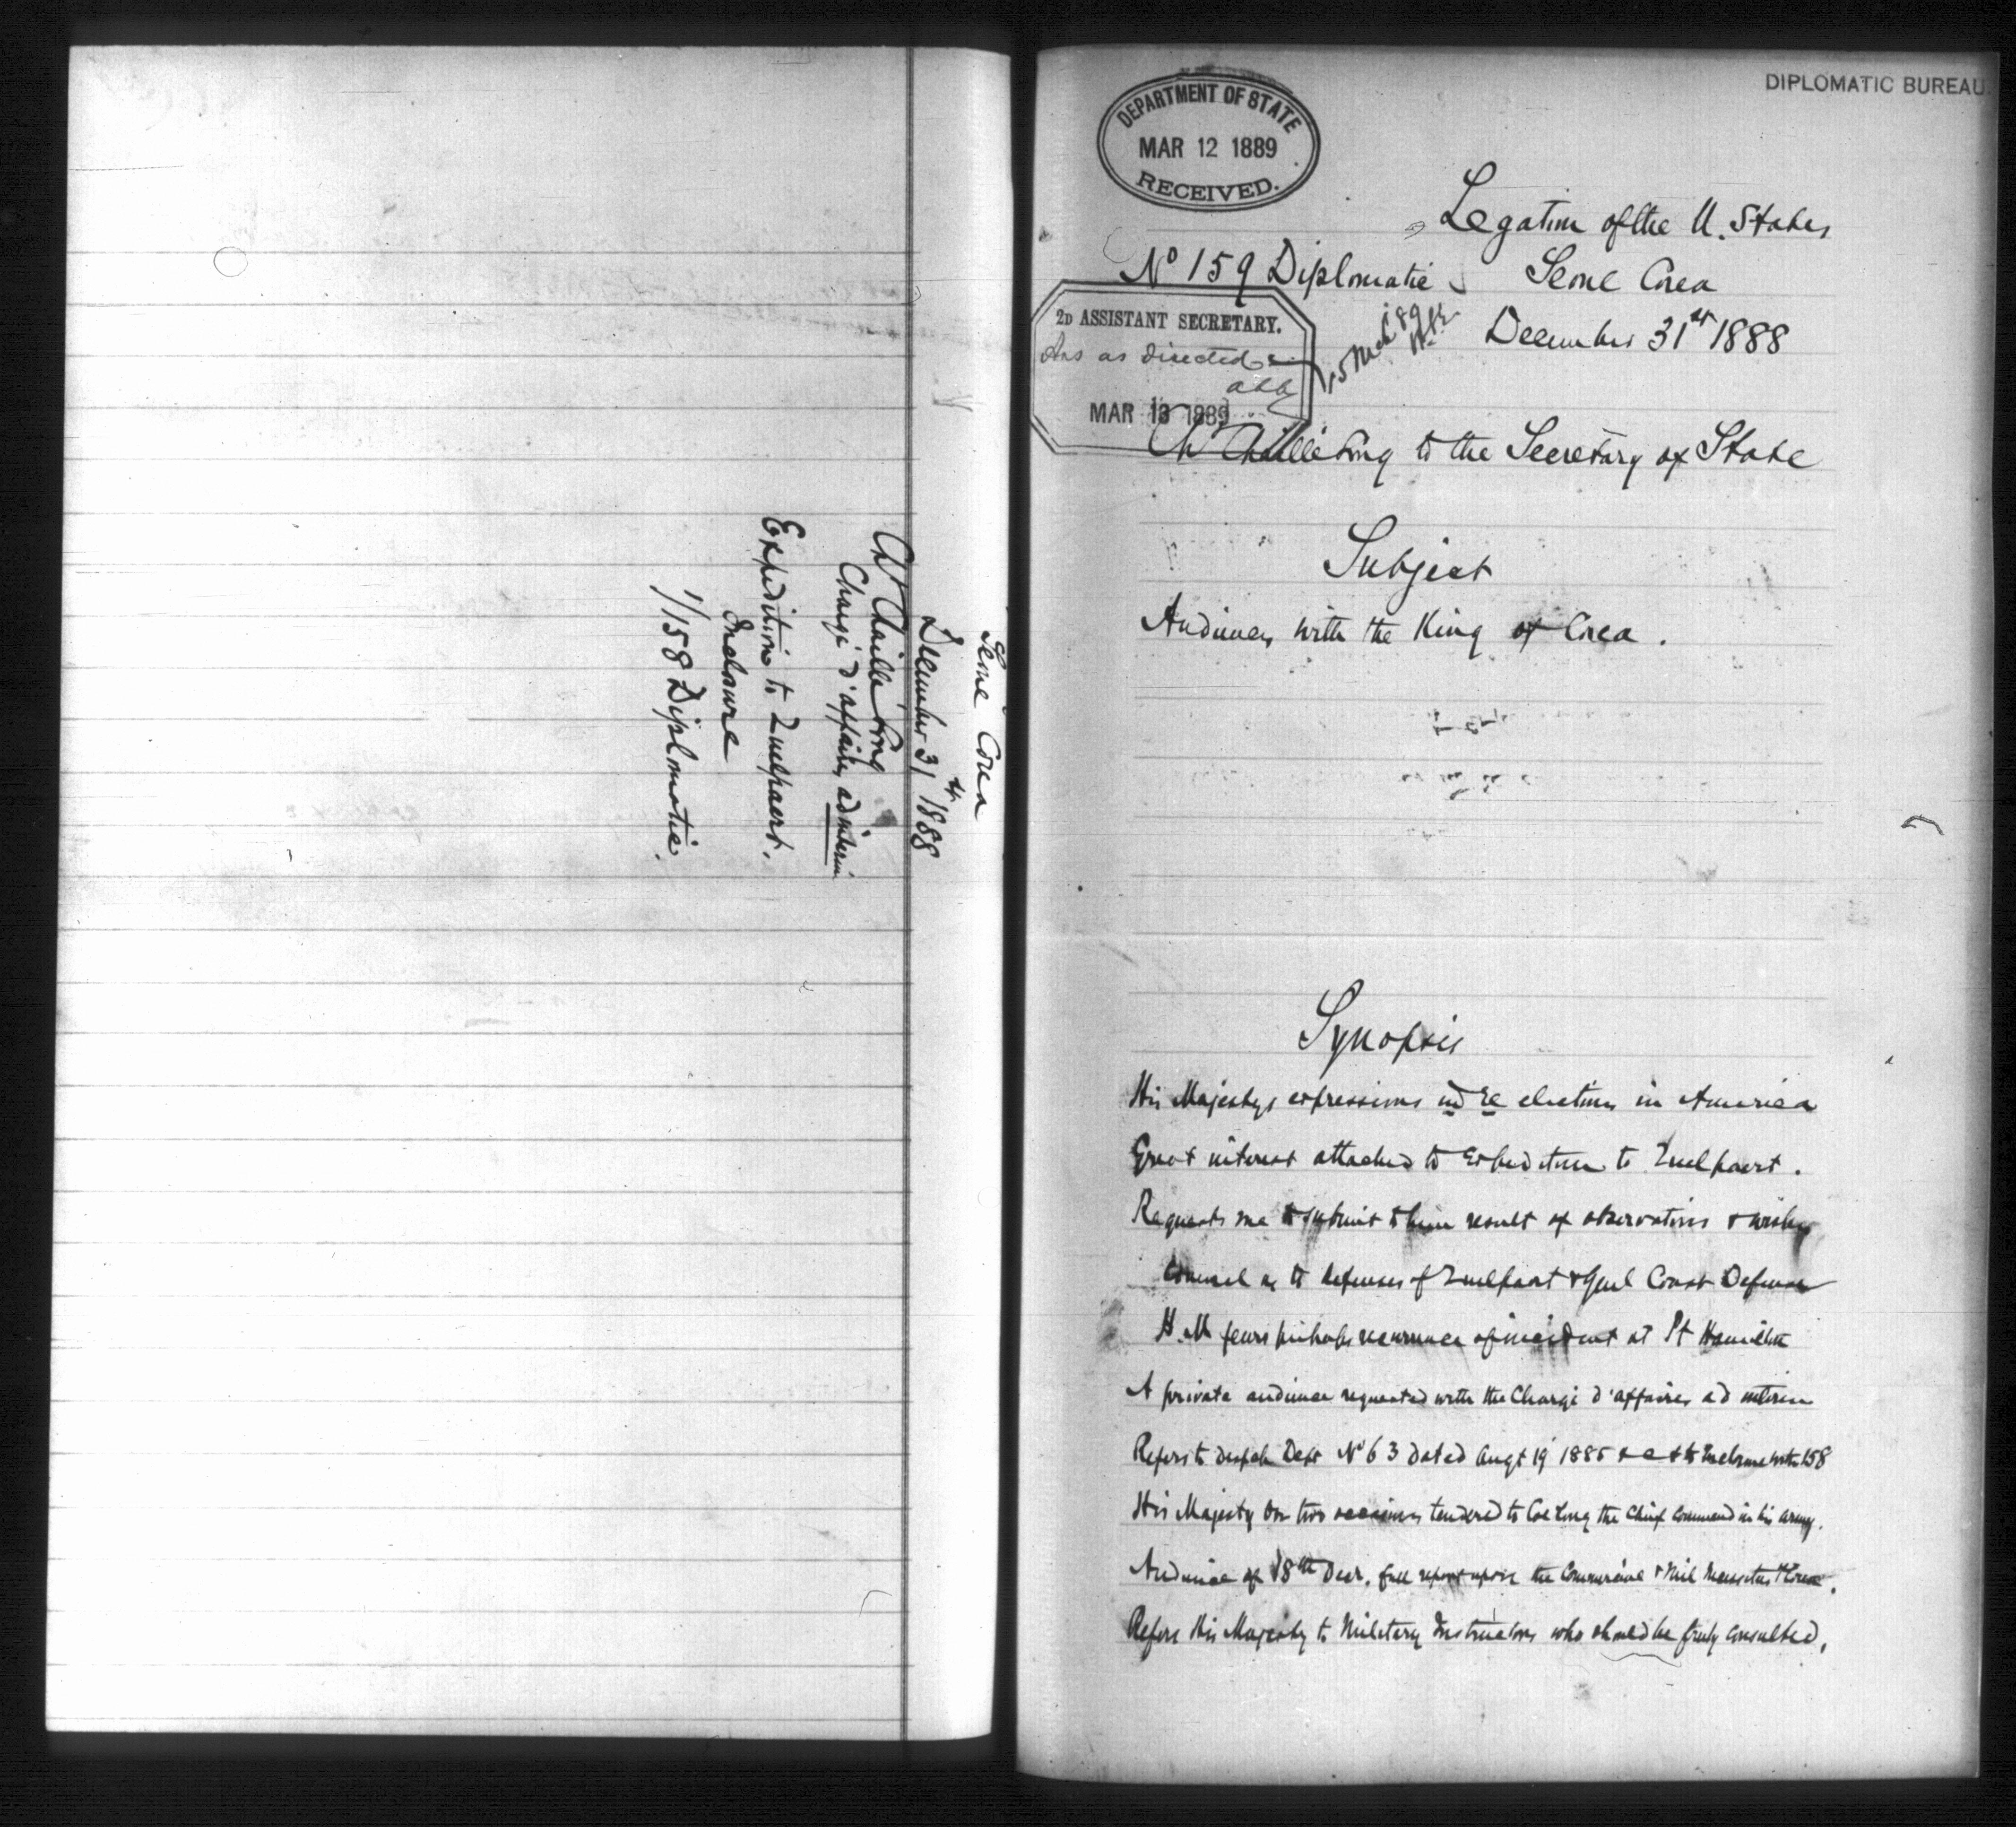 Seoul Corea
December 31st 1888
Ch Chaillé Long
Chargé d'affaires ad interim
Expedition to Quelpaert.
Inclosure
1/158 Diplomatic.
DIPLOMATIC BUREAU.
DEPARTMENT OF STATE
MAR 12 1889
RECEIVED.
Legation of the U. States
No 159 Diplomatic Seoul Corea
2D ASSISTANT SECRETARY.
Ans as directed
MAR 13 1889
15 Mch '89
December 31st 1888
Ch Chaillé Long to the Secretary of State
Subject
Audience with the King of Corea.
Synopsis
His Majestys expressions in re elections in America
Great interest attached to Expedition to Quelpaert.
Requests me to submit to him result of observations & wishes
Counsel as to defenses of Quelpaert & Genl Coast Defense
H. M fears perhaps recurrence of incident at Pt Hamilton
A private audience requested with the Chargé d'affaires ad interim
Refers to despatch Dept No 63 dated Augt 19 1885 & to Inclosure with 158
His Majesty on two occasions tendered to Col Long the Chief Command in his army.
Audience of 18th Decr. full report upon the Commercial & Mil Necessities Corea.
Refers His Majesty to Military Instructors who should be freely consulted.